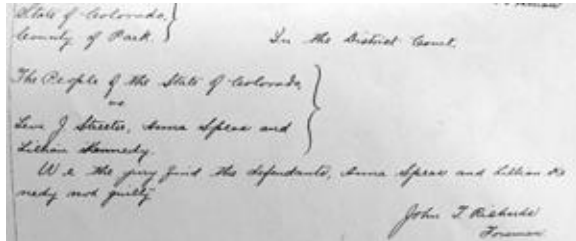 Foreman
State of Colorado,
County of Park.
In the District Court.
The People of the State of Colorado,
vs
J Streeter, Anna Spear and
Lillian Kennedy.
We the jury find the defendants, Anna Spear and Lillian Ken
nedy not guilty
John T. Richards
Foreman